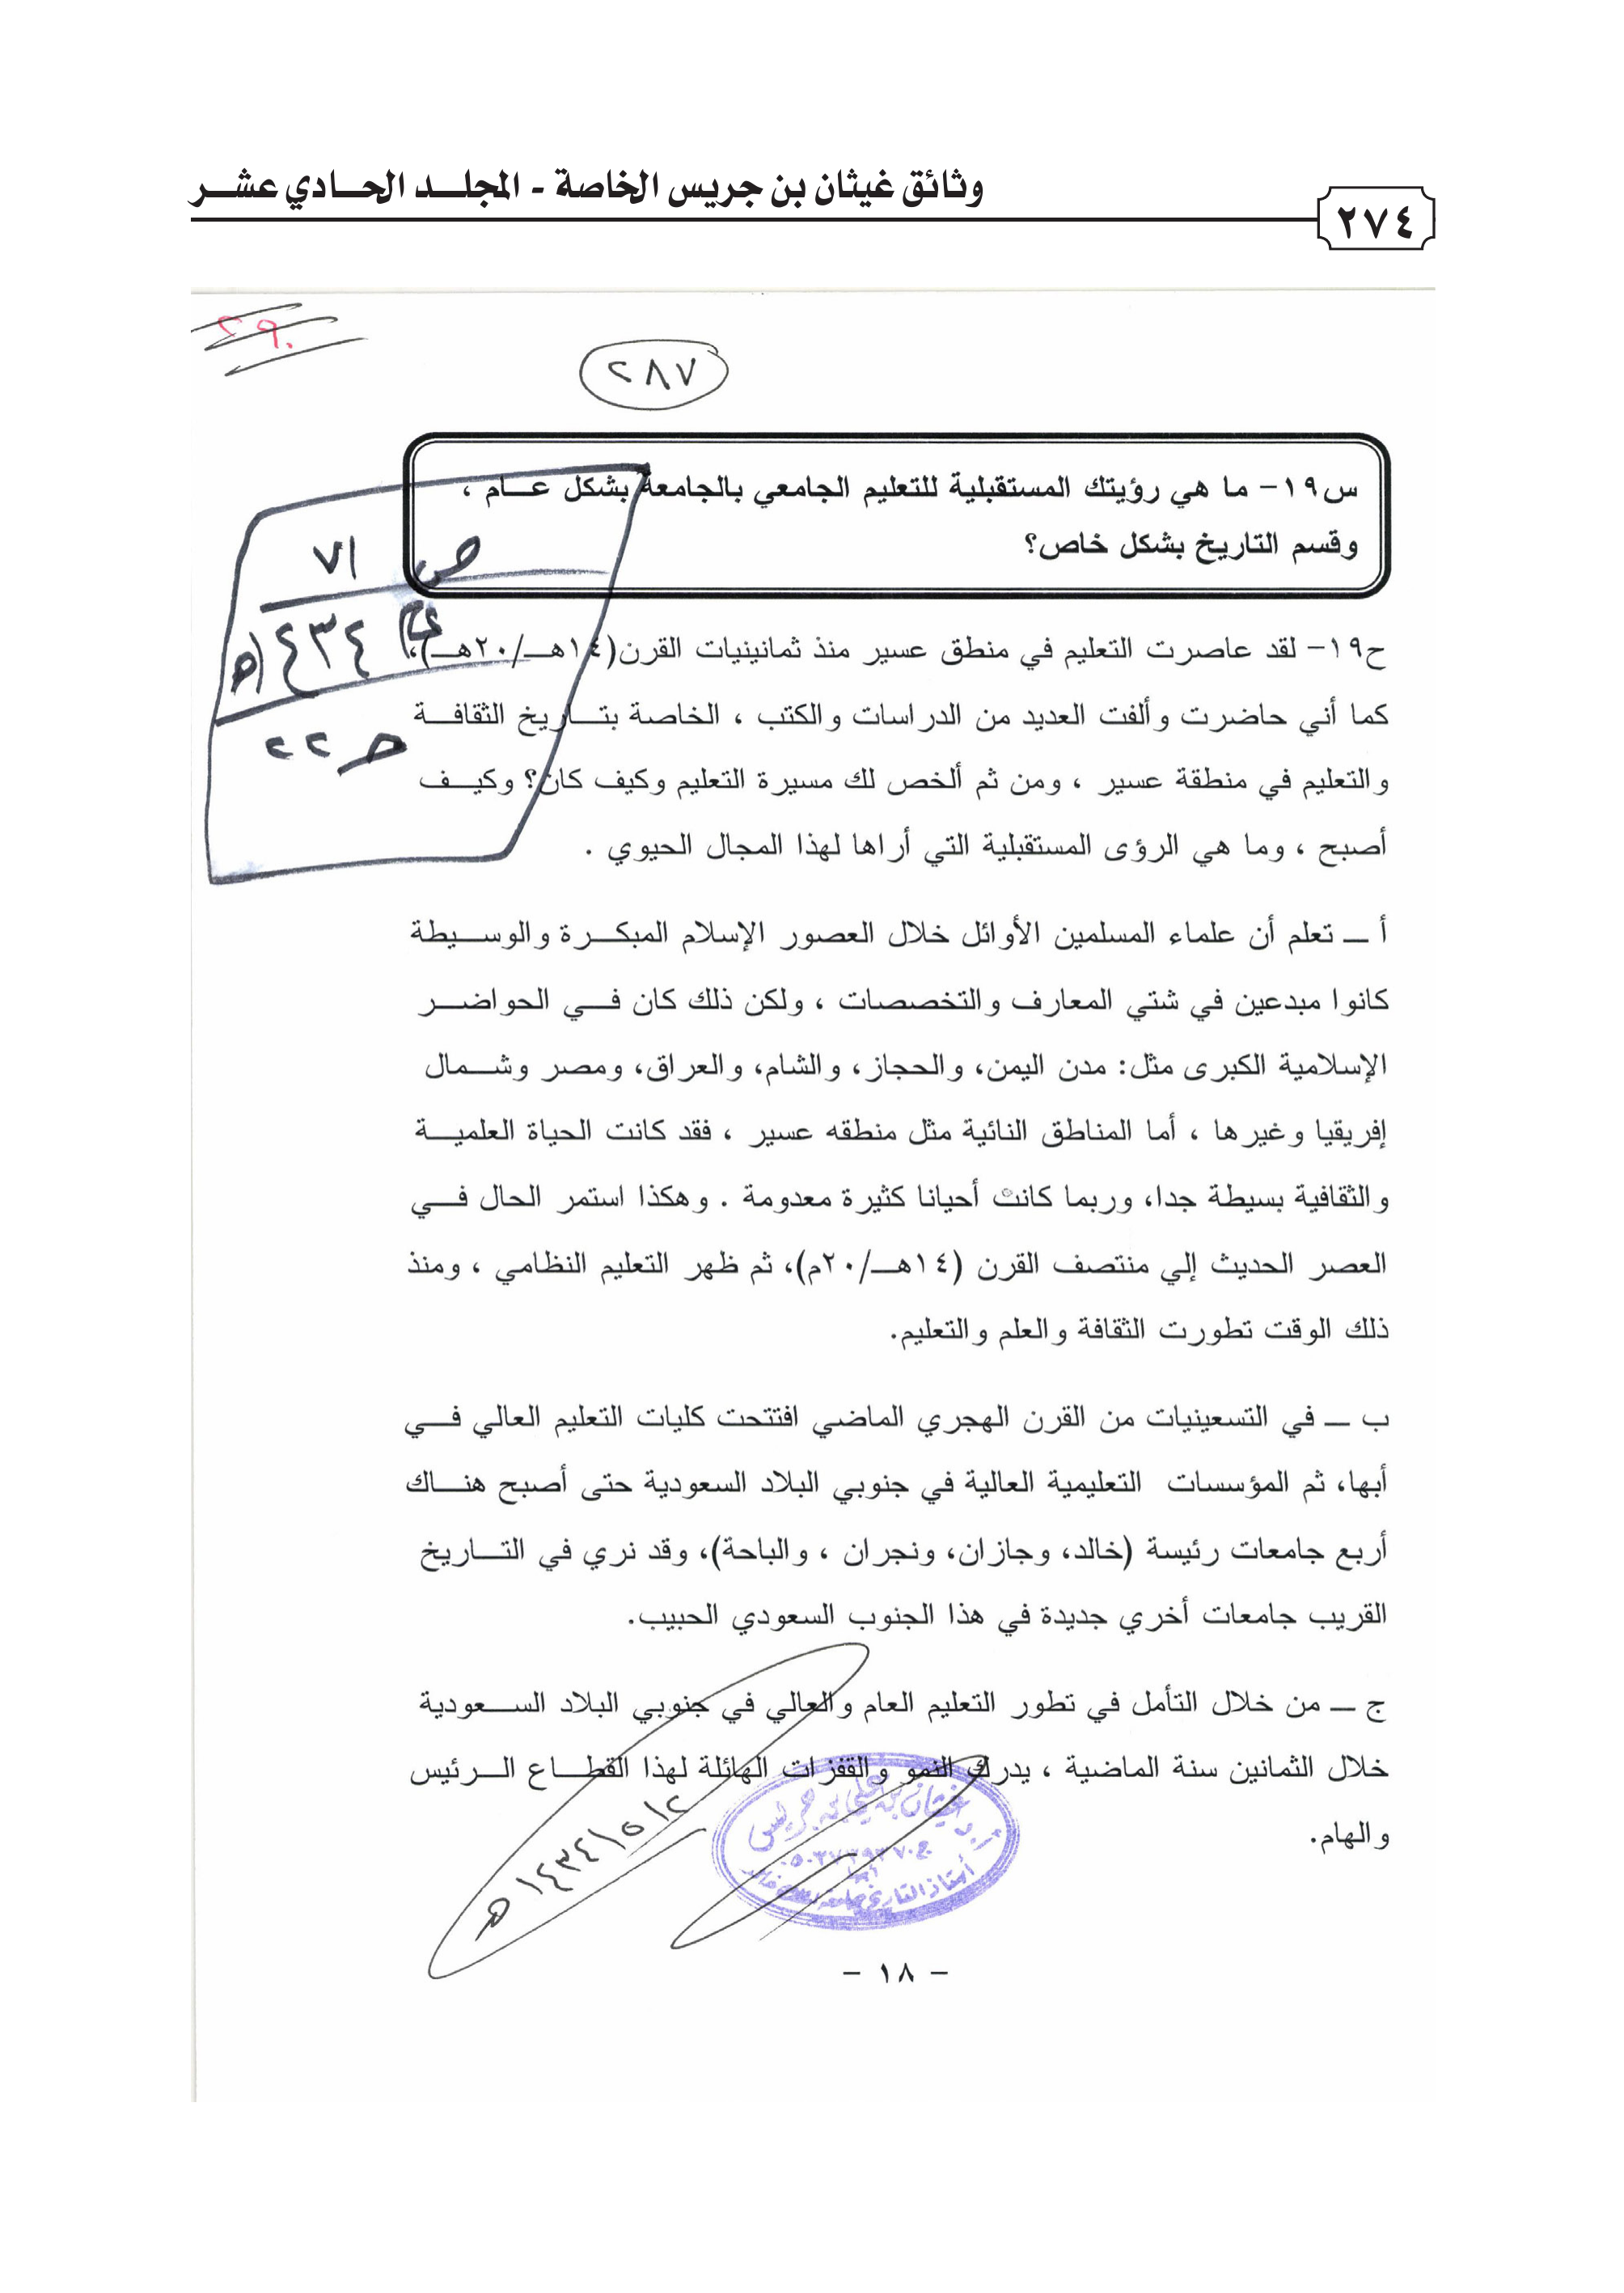 وثائق غيثان بن جريس الخاصة - المجلـــد الحـــادي عشـــر
٢٧٤
٢٩٠
٢٨٧
س١٩- ما هي رؤيتك المستقبلية للتعليم الجامعي بالجامعة بشكل عـــام ،
وقسم التاريخ بشكل خاص؟
ص ٧١
٤٣٤
١ه
ح ٢٢
ح١٩- لقد عاصرت التعليم في منطق عسير منذ ثمانينيات القرن(١٤هـــ/٢٠هـــ)،
كما أني حاضرت وألفت العديد من الدراسات والكتب ، الخاصة بتـــاريخ الثقافـــة
والتعليم في منطقة عسير ، ومن ثم ألخص لك مسيرة التعليم وكيف كان؟ وكيـــف
أصبح ، وما هي الرؤى المستقبلية التي أراها لهذا المجال الحيوي .
أ ـــ تعلم أن علماء المسلمين الأوائل خلال العصور الإسلام المبكـــرة والوســـيطة
كانوا مبدعين في شتي المعارف والتخصصات ، ولكن ذلك كان فـــي الحواضـــر
الإسلامية الكبرى مثل: مدن اليمن، والحجاز، والشام، والعراق، ومصر وشـــمال
إفريقيا وغيرها ، أما المناطق النائية مثل منطقه عسير ، فقد كانت الحياة العلميـــة
والثقافية بسيطة جدا، وربما كانت أحيانا كثيرة معدومة . وهكذا استمر الحال فـــي
العصر الحديث إلي منتصف القرن (١٤هـــ/٢٠م)، ثم ظهر التعليم النظامي ، ومنذ
ذلك الوقت تطورت الثقافة والعلم والتعليم.
ب ـــ في التسعينيات من القرن الهجري الماضي افتتحت كليات التعليم العالي فـــي
أبها، ثم المؤسسات التعليمية العالية في جنوبي البلاد السعودية حتى أصبح هنـــاك
أربع جامعات رئيسة (خالد، وجازان، ونجران ، والباحة)، وقد نري في التـــاريخ
القريب جامعات أخري جديدة في هذا الجنوب السعودي الحبيب.
ج ـــ من خلال التأمل في تطور التعليم العام والعالي في جنوبي البلاد الســـعودية
خلال الثمانين سنة الماضية ، يدرك النمو والقفزات الهائلة لهذا القطـــاع الـــرئيس
والهام.
٢/٥/١٤٣٤ه
أ.د غيثان بن علي بن جريس
أستاذ التاريخ جامعة
- ١٨ -